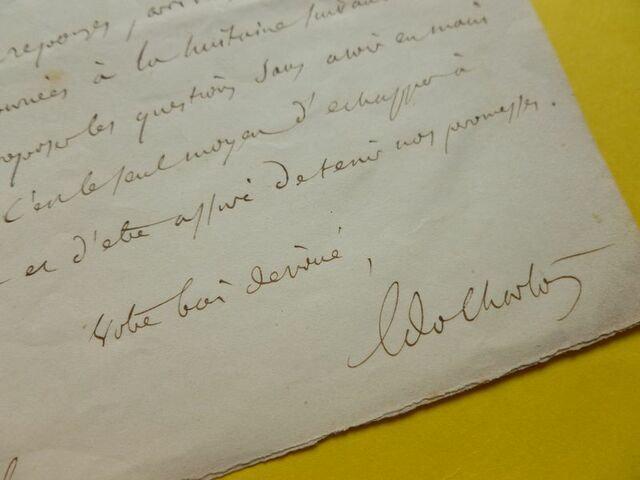 reponses,
à la huitaine
les questions sans avoir en main
C'est le seul moyen d'echapper à
et d'etre assuré de tenir nos promesses.
Votre bien devoué,
Ed Charton